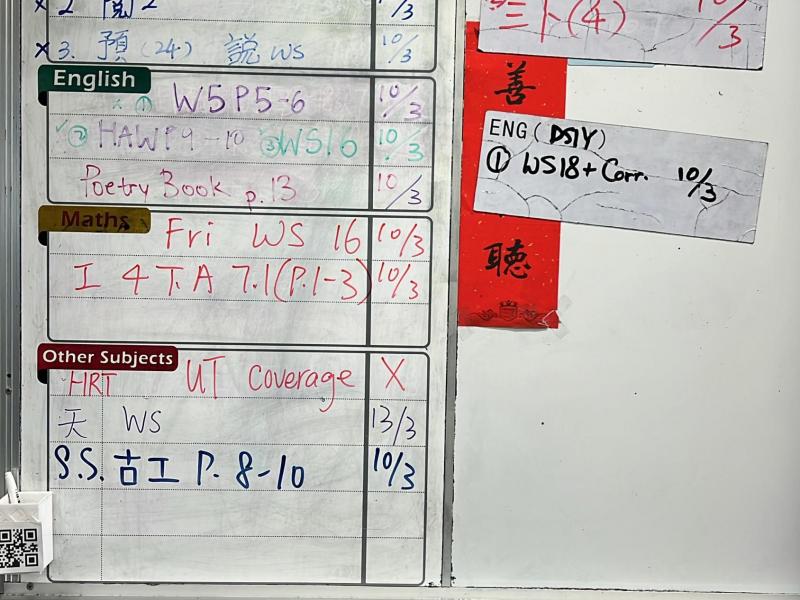 x 2. 閱2 /3
x 3. 預(24) 說 WS 10/3
English
x ① W5P5-6 10/3
✓② HAWP9-10 ③WS16 10/3
Poetry Book p.13 10/3
Maths
Fri WS 16 10/3
工 4下A 7.1(P.1-3) 10/3
Other Subjects
HRT UT Coverage X
天 WS 13/3
S.S. 古工 P. 8-10 10/3
三卜(4) 10/3
善
ENG (DSIY)
① WS18 + Corr. 10/3
聽